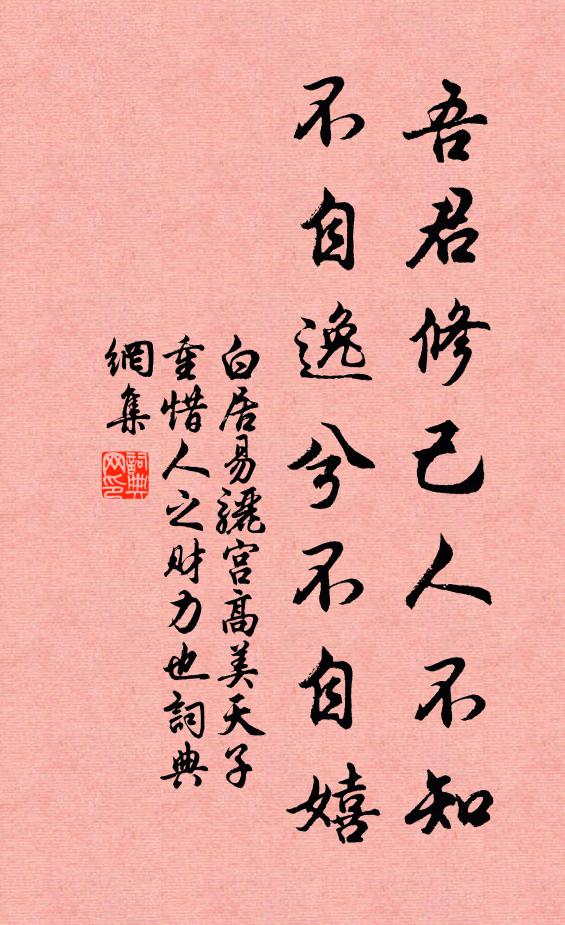 吾君修己人不知
不自逸兮不自嬉
白居易驪宮高美天子
重惜人之財力也詞典
網集
詞典
网印